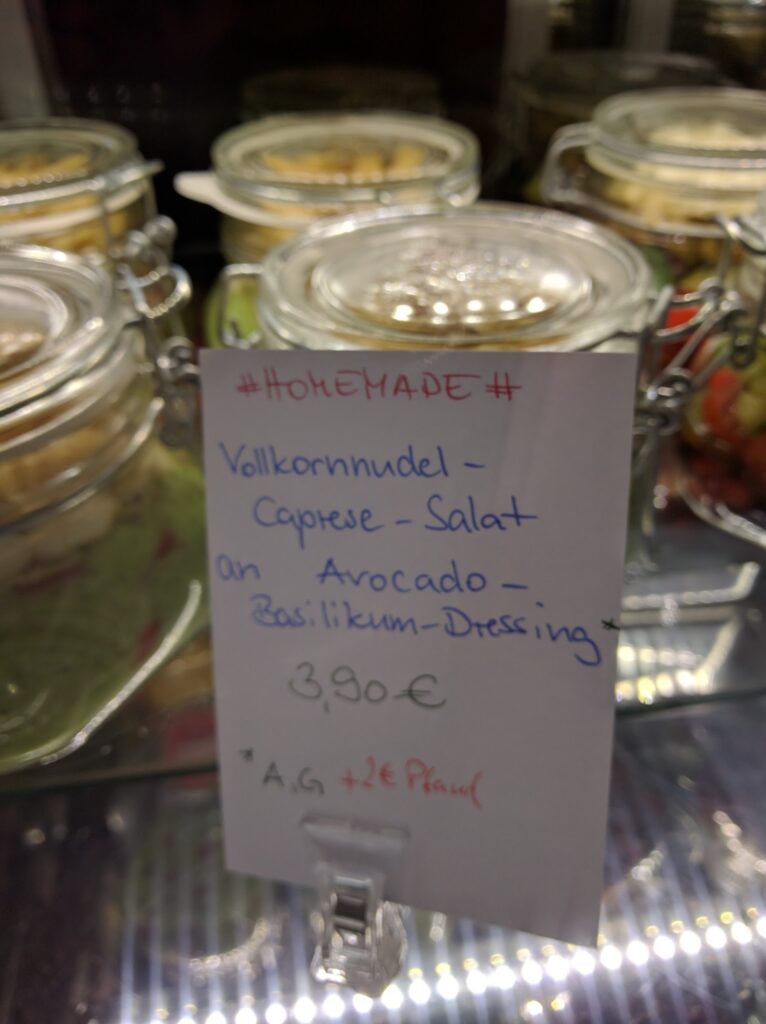 #HOMEMADE#
Vollkornnudel-
Caprese-Salat
an Avocado-
Basilikum-Dressing*
3,90 €
*A,G +2€ Pfand